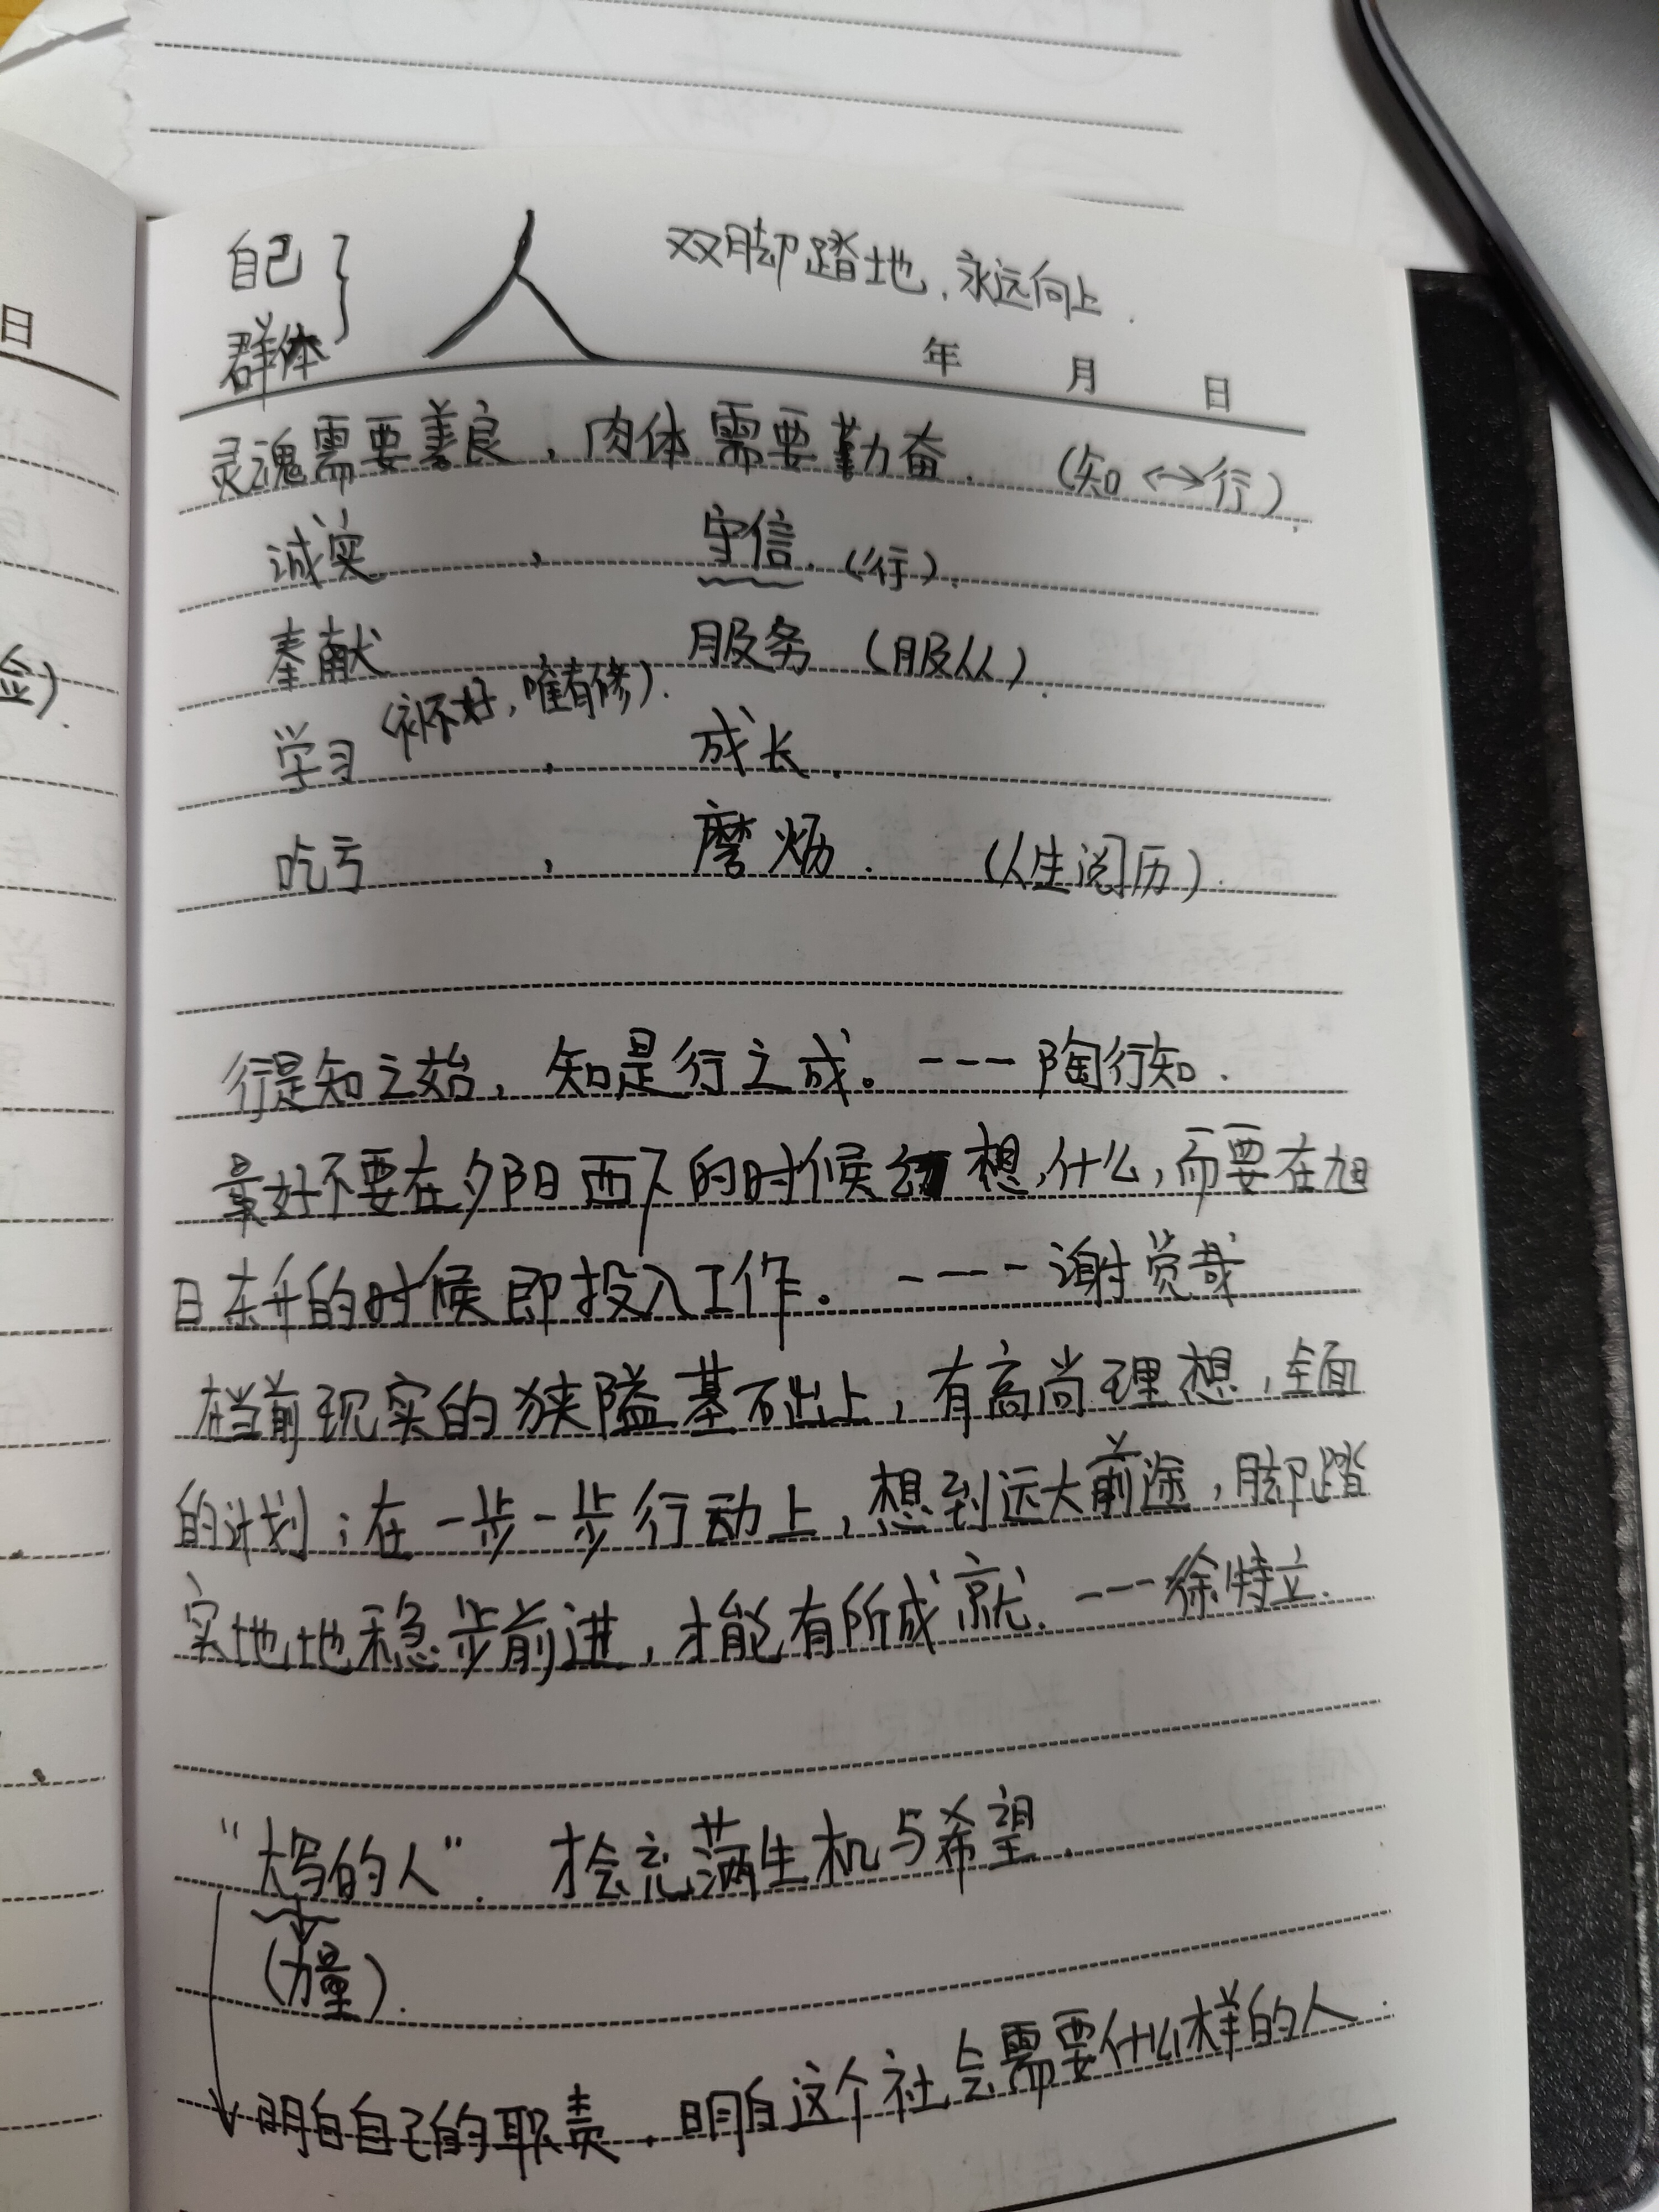 自己 } 人 双脚踏地，永远向上.
群体
年 月 日
日
灵魂需要善良，肉体需要勤奋. (知 <-> 行).
诚实 ， 守信. (行).
奉献 服务 (服从).
(不好，唯有修).
学习 ， 成长.
吃亏 ， 磨炀. (人生阅历).
行是知之始，知是行之成。---陶行知.
最好不要在夕阳西下的时候幻想什么，而要在旭
日东升的时候即投入工作。----谢觉哉
在当前现实的狭隘基础上，有高尚理想，全面
的计划；在一步一步行动上，想到远大前途，脚踏
实地地稳步前进，才能有所成就.---徐特立.
“大写的人”. 才会充满生机与希望.
(力量).
明白自己的职责. 明白这个社会需要什么样的人.